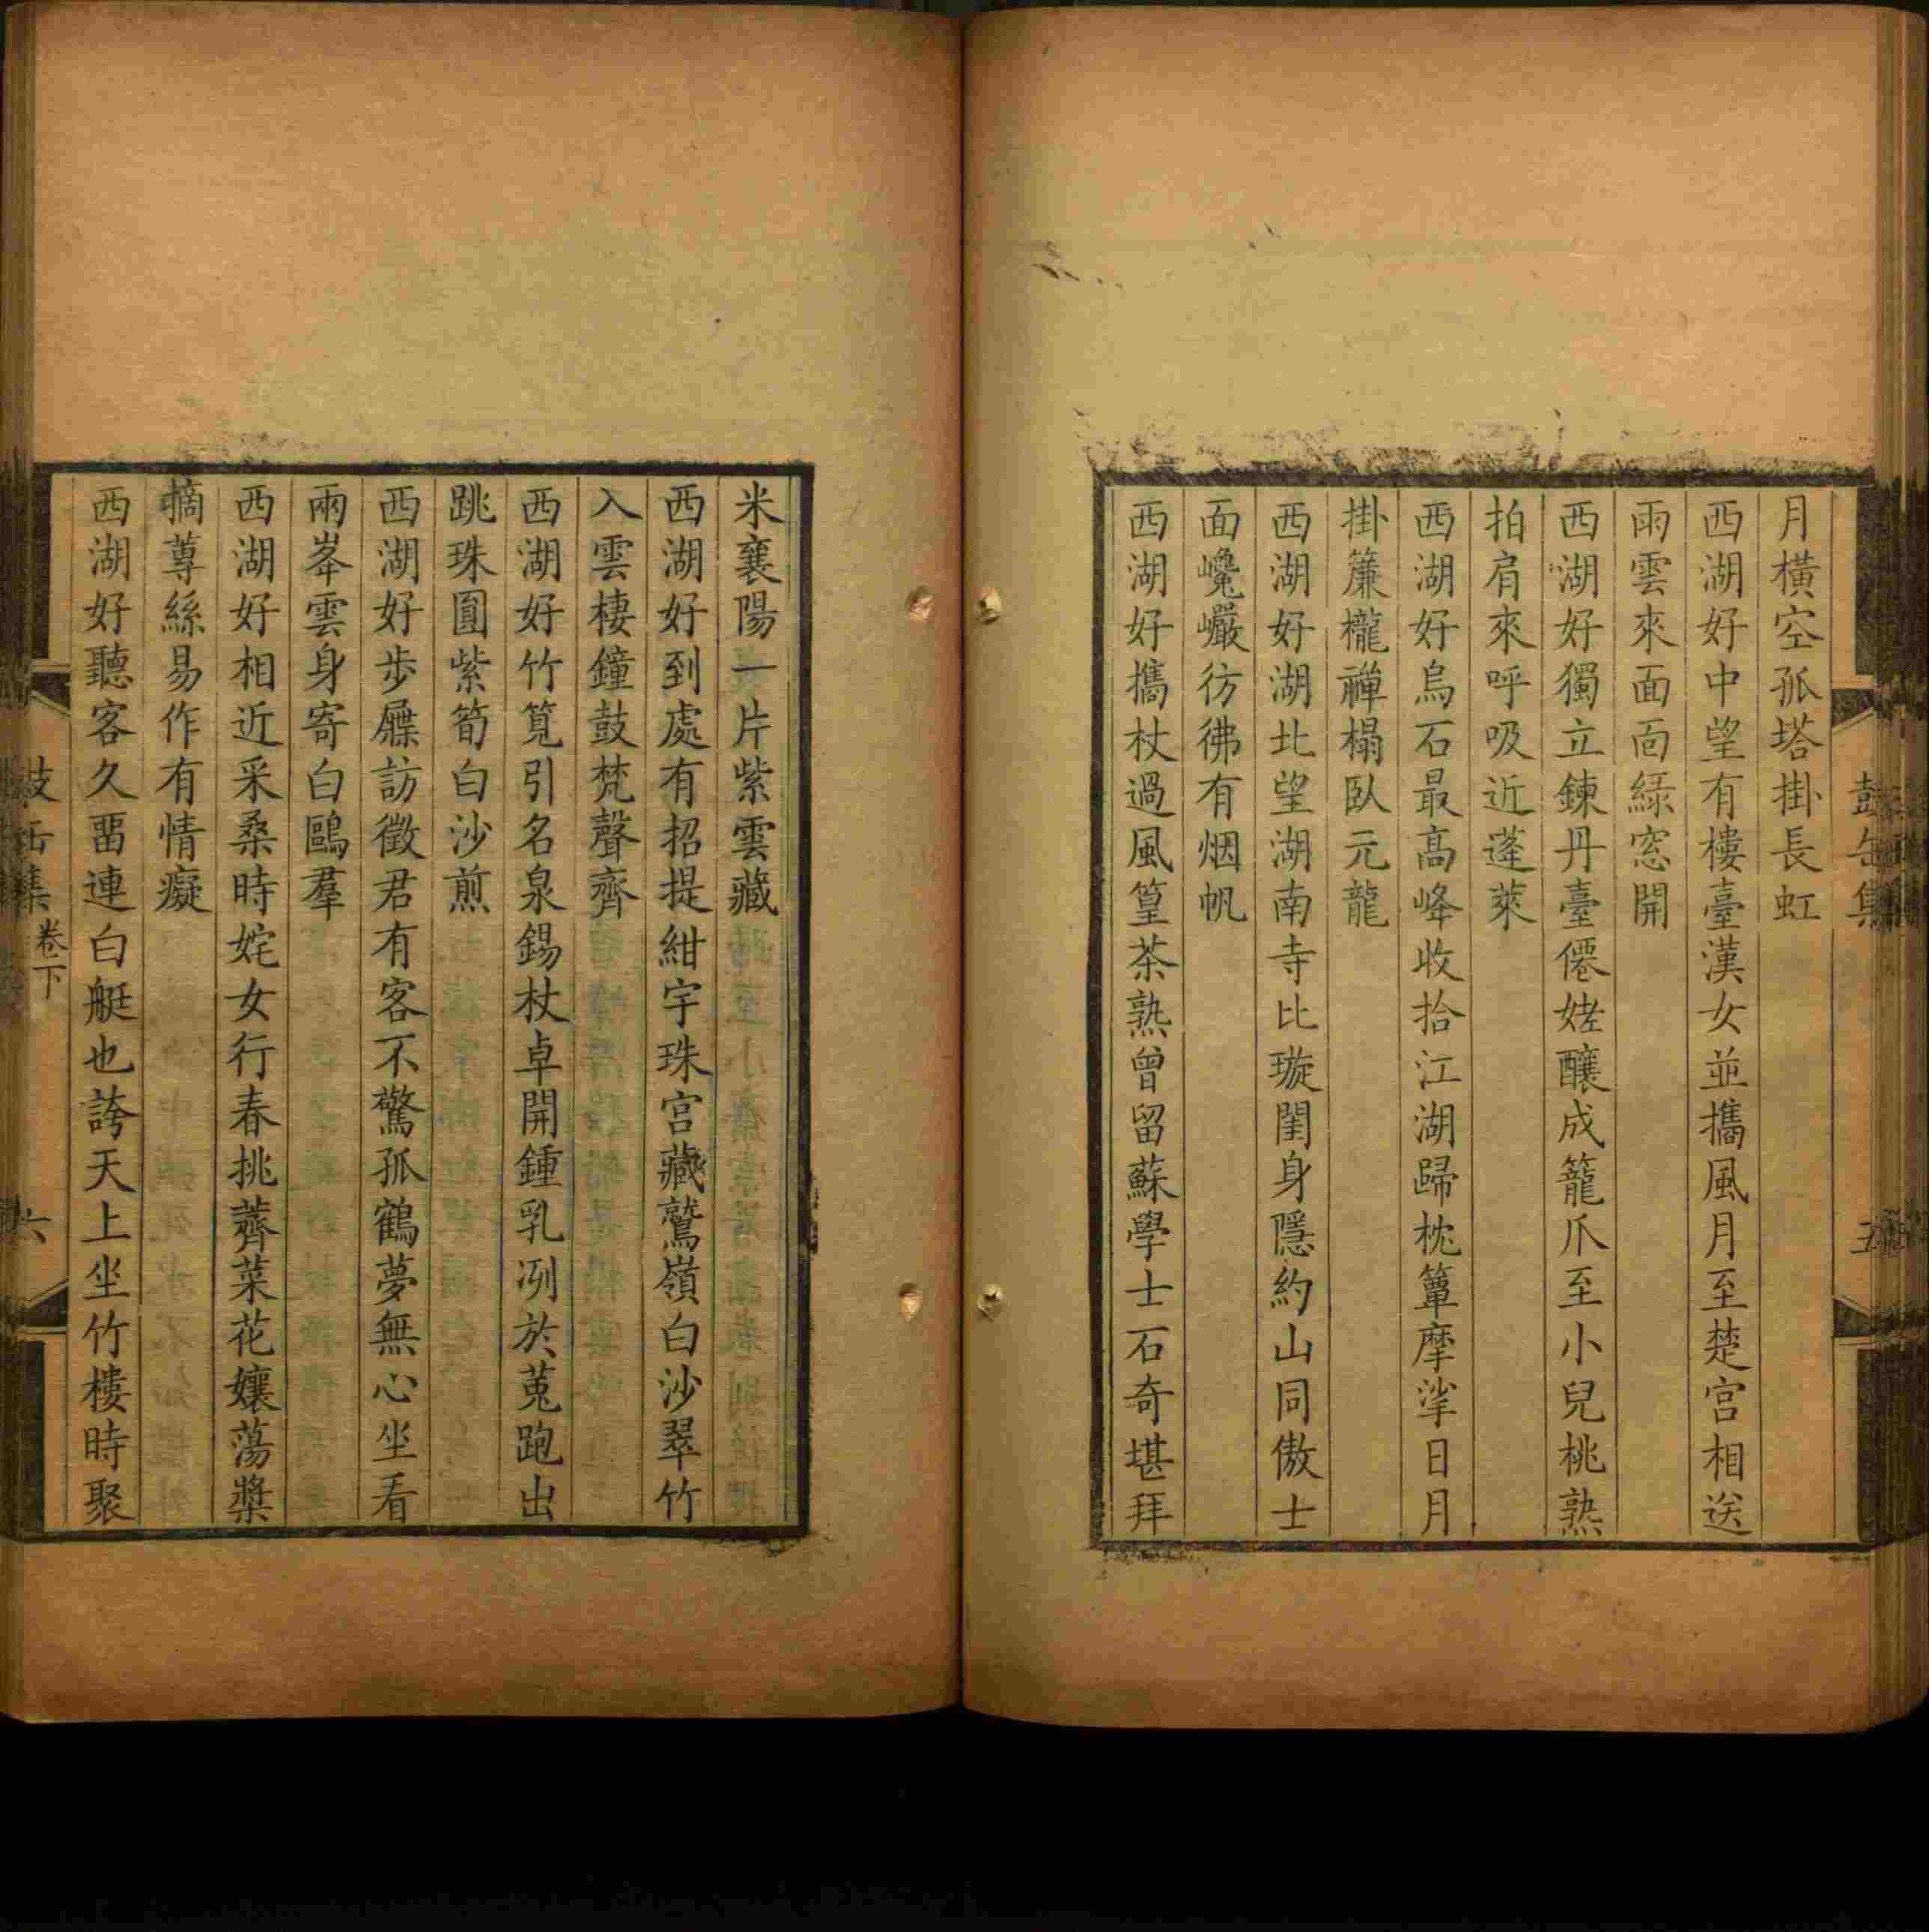 月橫空孤塔掛長虹
西湖好中望有樓臺漢女並攜風月至楚宮相送
雨雲來面面綠窓開
西湖好獨立鍊丹臺僊姥釀成籠爪至小兒桃熟
拍肩來呼吸近蓬萊
西湖好烏石最高峰收拾江湖歸枕簟摩挲日月
掛簾櫳禪榻臥元龍
西湖好湖北望湖南寺比璇閨身隱約山同傲士
面巉巖彷彿有烟帆
西湖好攜杖過風篁茶熟曾留蘇學士石奇堪拜
米襄陽一片紫雲藏
西湖好到處有招提紺宇珠宮藏鷲嶺白沙翠竹
入雲棲鐘鼓梵聲齊
西湖好竹筧引名泉錫杖卓開鍾乳冽於菟跑出
跳珠圓紫筍白沙煎
西湖好步屧訪徵君有客不驚孤鶴夢無心坐看
兩峯雲身寄白鷗羣
西湖好相近采桑時姹女行春挑薺菜花孃蕩槳
摘蓴絲易作有情癡
西湖好聽客久畱連白艇也誇天上坐竹樓時聚
集卷下
六